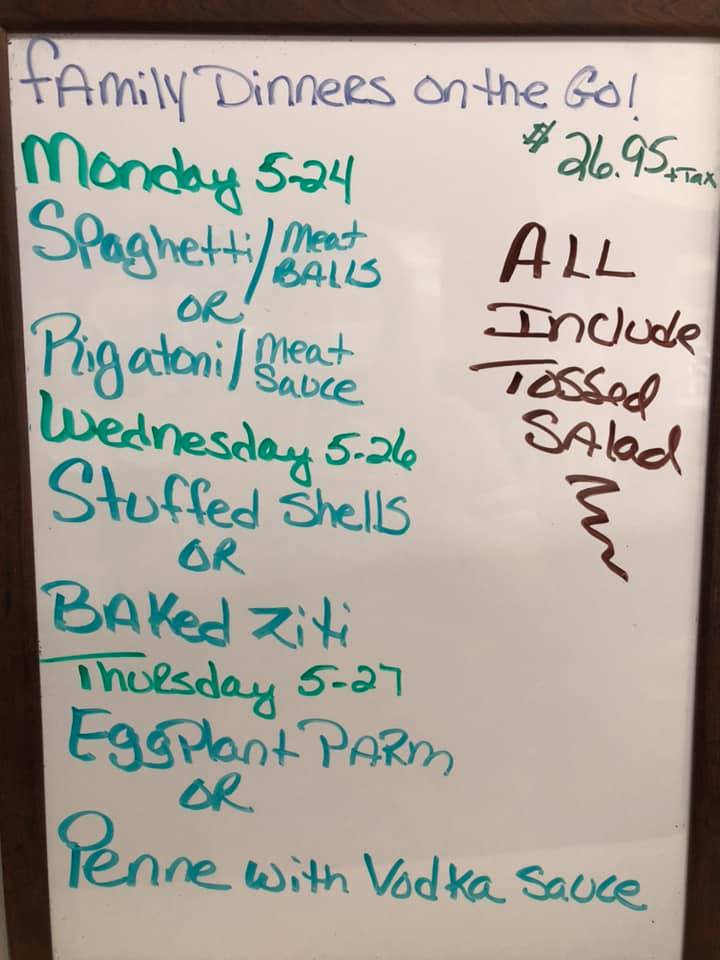 fAmily Dinners on the Go!
$26.95 + Tax
Monday 5-24
Spaghetti/Meat BALLS
OR
Rigatoni/Meat Sauce
Wednesday 5-26
Stuffed Shells
OR
BAKed Ziti
Thursday 5-27
EggPlant PARm
OR
Penne with Vodka Sauce
ALL
Include
Tossed
SAlad